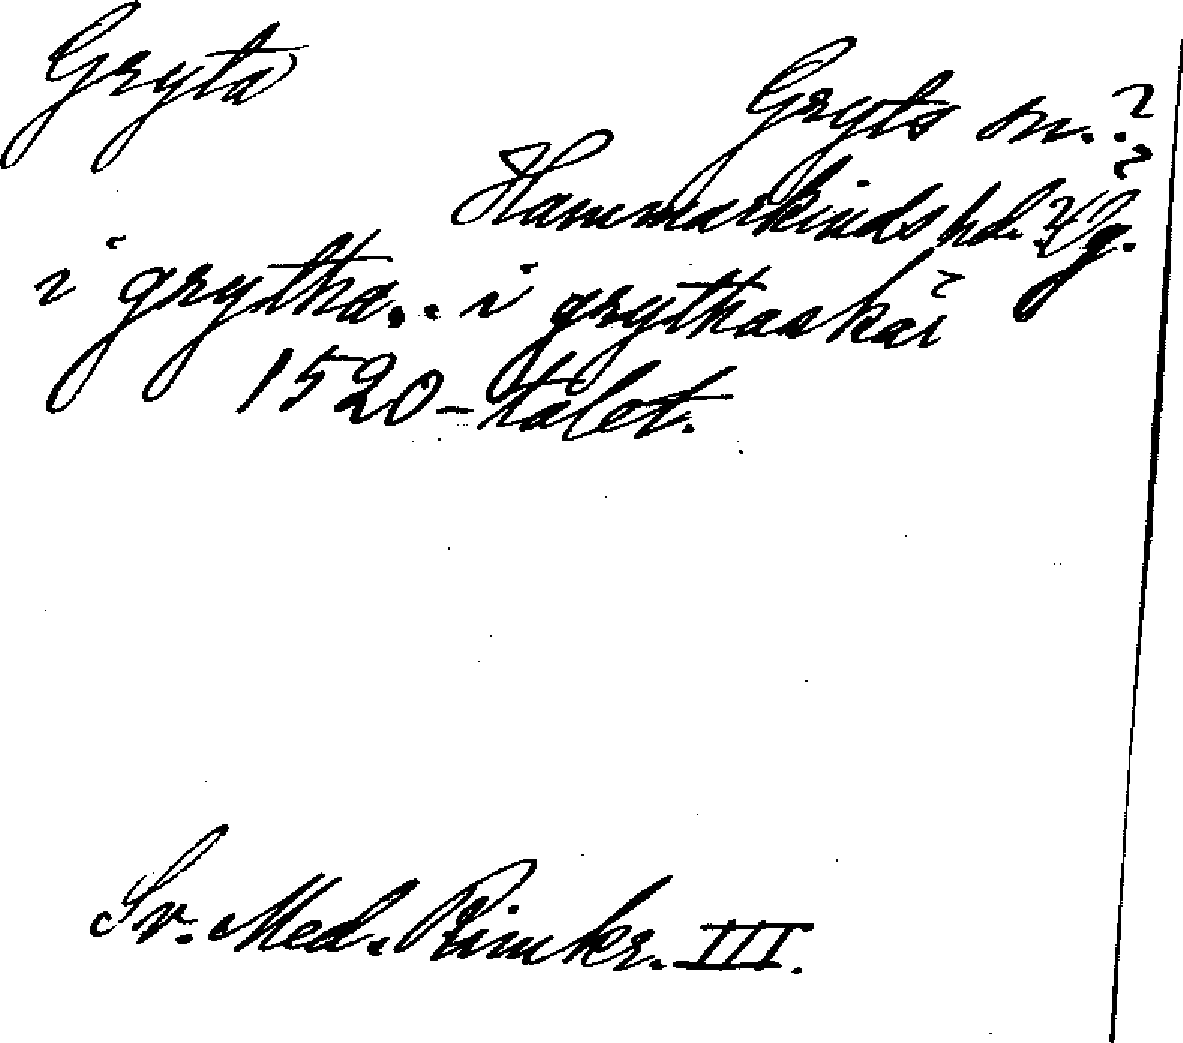 Gryta
Gryts sn.?
Hammarkinds hd. Ög.?
i grytha.. i grythaskär
1520-talet.
Sv. Med. Rimkr. III.